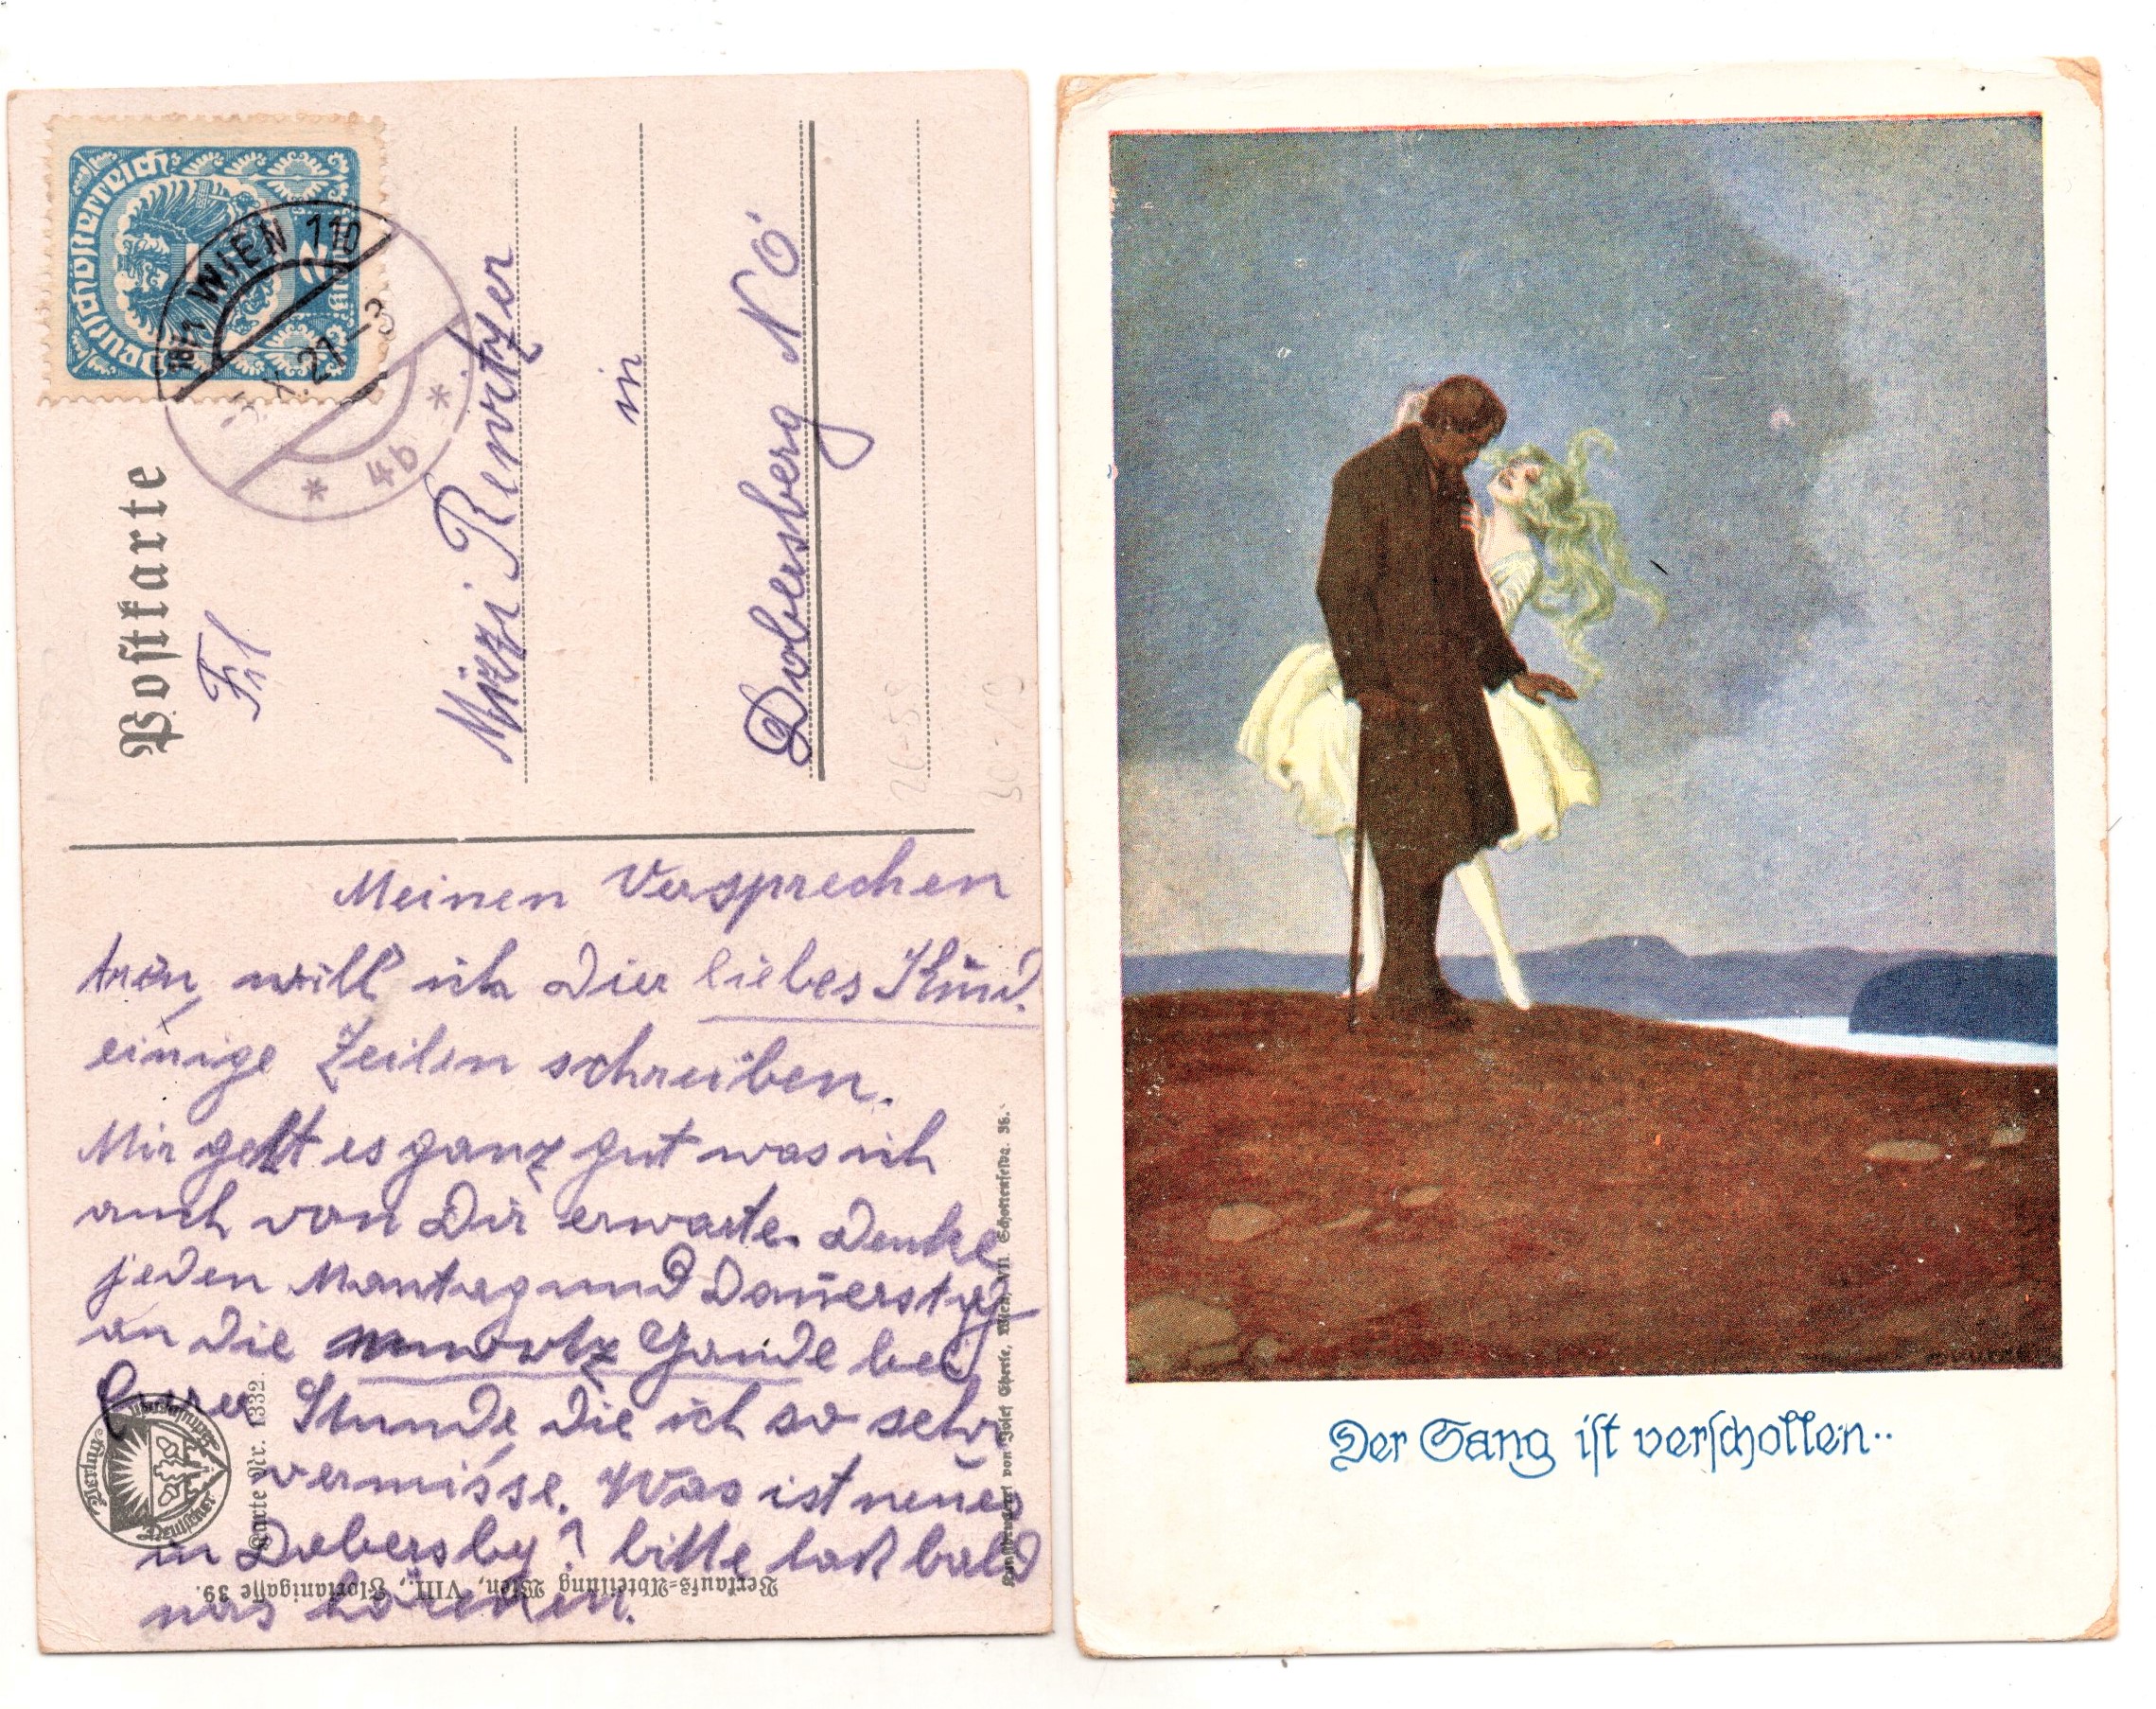 Deutschösterreich
1/1 WIEN 110
X. 21–3
* 4b *
Postkarte
Frl
Mizzi
in
Dobersberg NÖ
26-58
30-19
Meinen Versprechen
treu, will ich Dier liebes Kind.
einige Zeilen schreiben.
Mir geht es ganz gut was ich
auch von Dir erwarte. Denke
jeden Mantag und Donnerstag
an die bei
Eurer Stunde die ich so sehr
vermisse. Was ist neues
in Dobersbg? bitte laß bald
was hören.
Deutscher
Karte Nr. 1332.
Verkaufs-Abteilung Wien, VIII., Florianigasse 39.
Kunstdruckerei von Josef Eberle, Wien, VII. Schottenfeldg. 36.
Der Sang ist verschollen..